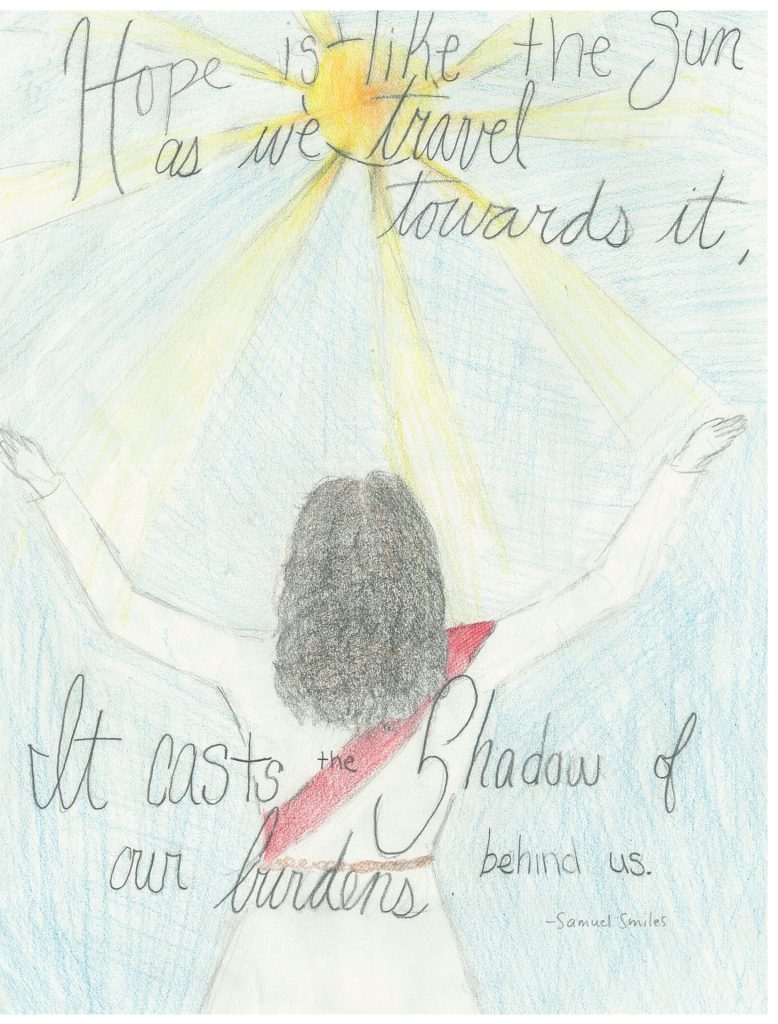 Hope is like the Sun
as we travel
towards it,
It casts the Shadow of
our burdens behind us.
-Samuel Smiles